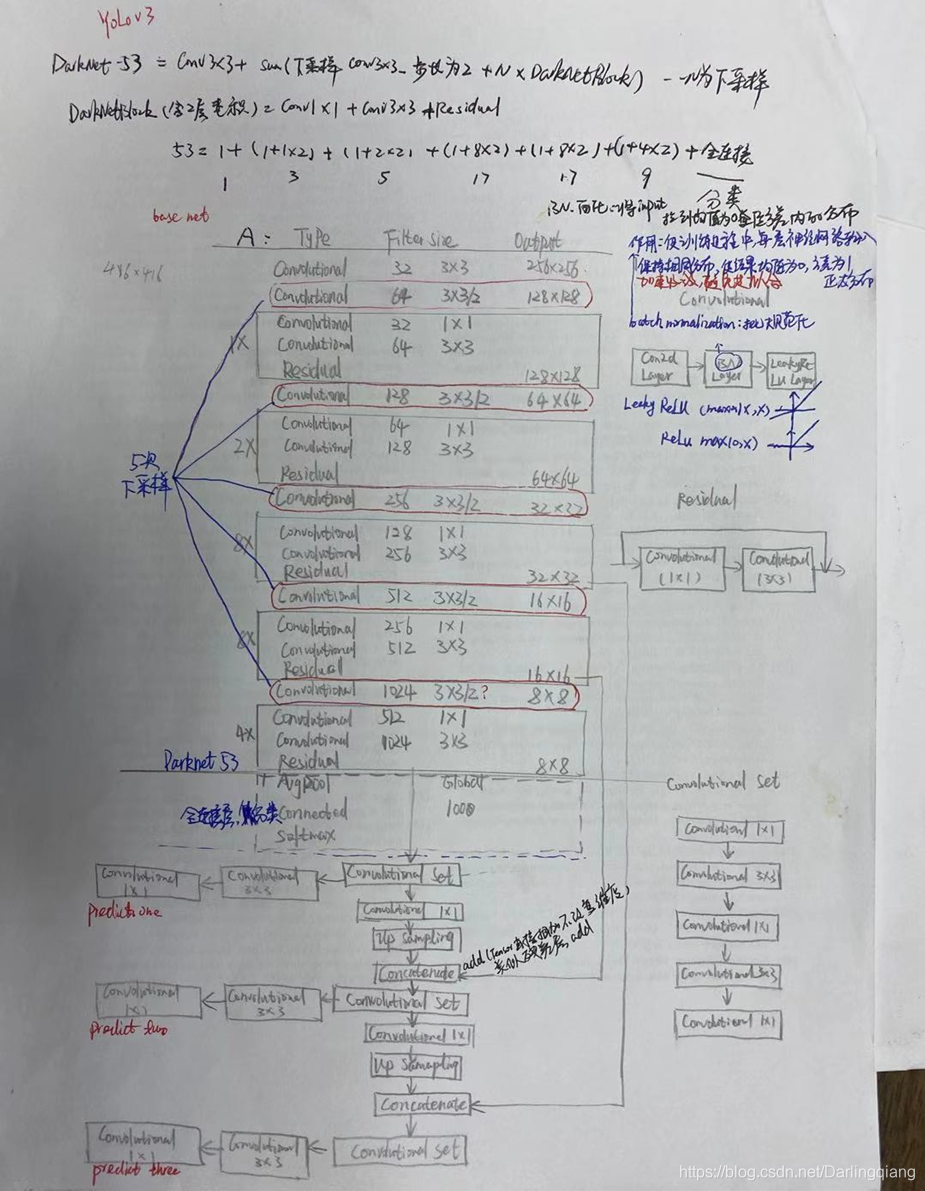 YOLOv3
DarkNet-53 = Conv3×3 + sum(下采样 conv3×3_步长为2 + N × DarkNetBlock) 下采样
DarkNetBlock(含2层卷积) = Conv1×1 + Conv3×3 + Residual
53 = 1 + (1+1×2) + (1+2×2) + (1+8×2) + (1+8×2) + (1+4×2) + 全连接
1 3 5 17 17 9 分类
base net
A: Type Filter size Output
416×416
Convolutional 32 3×3 256×256
Convolutional 64 3×3/2 128×128
Convolutional 32 1×1
1× Convolutional 64 3×3
Residual 128×128
Convolutional 128 3×3/2 64×64
Convolutional 64 1×1
2× Convolutional 128 3×3
Residual 64×64
Convolutional 256 3×3/2 32×32
Convolutional 128 1×1
8× Convolutional 256 3×3
Residual 32×32
Convolutional 512 3×3/2 16×16
Convolutional 256 1×1
8× Convolutional 512 3×3
Residual 16×16
Convolutional 1024 3×3/2? 8×8
Convolutional 512 1×1
4× Convolutional 1024 3×3
Residual 8×8
5次
下采样
Darknet 53
Avgpool Global
全连接层, 分类
Connected 1000
softmax
input
作用:使训练过程中,每层神经网络输入
保持相同分布,使结果均值为0,方差为1
正态分布
Convolutional
batch normalization:批规范化
Con2d Layer
BN Layer
LeakyReLU Layer
Leaky ReLU
ReLu max(0,x)
Residual
Convolutional (1×1)
Convolutional (3×3)
Convolutional set
Convolutional 1×1
Convolutional 3×3
Convolutional 1×1
Convolutional 3×3
Convolutional 1×1
Convolutional 1×1
Convolutional 3×3
Convolutional set
predict one
Convolutional 1×1
Up sampling
Concatenate
add(Tensor直接相加
add
Convolutional 1×1
Convolutional 3×3
Convolutional set
predict two
Convolutional 1×1
Up samapling
Concatenate
Convolutional 1×1
Convolutional 3×3
Convolutional set
predict three
https://blog.csdn.net/Darlingqiang